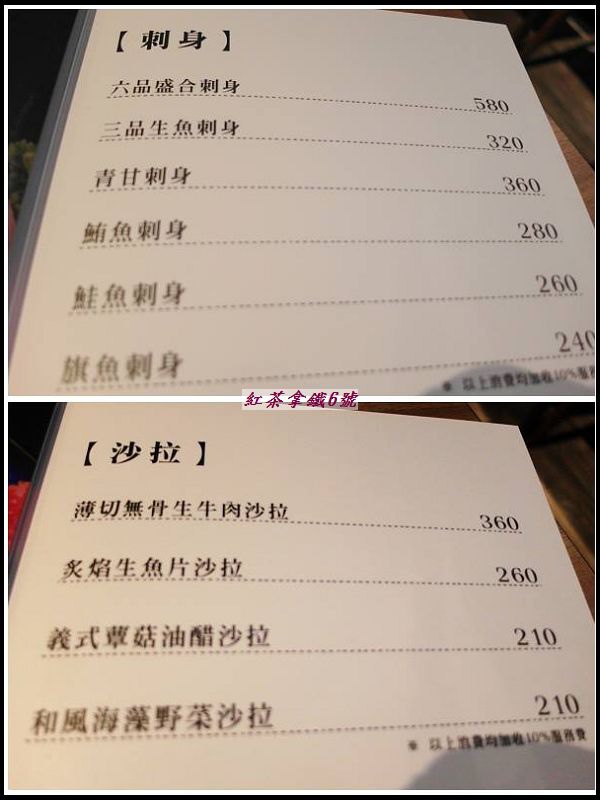 【刺身】
六品盛合刺身 580
三品生魚刺身 320
青甘刺身 360
鮪魚刺身 280
鮭魚刺身 260
旗魚刺身 240
※ 以上消費均加收10%服務
紅茶拿鐵6號
【沙拉】
薄切無骨生牛肉沙拉 360
炙焰生魚片沙拉 260
義式蕈菇油醋沙拉 210
和風海藻野菜沙拉 210
※ 以上消費均加收10%服務費